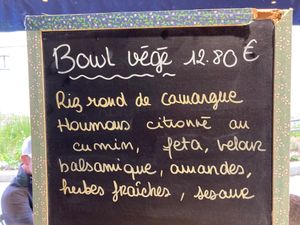 Bowl végé 12.80 €
Riz rond de camargue
Houmous citronné au
cumin, feta, velour
balsamique, amandes,
herbes fraîches, sesame